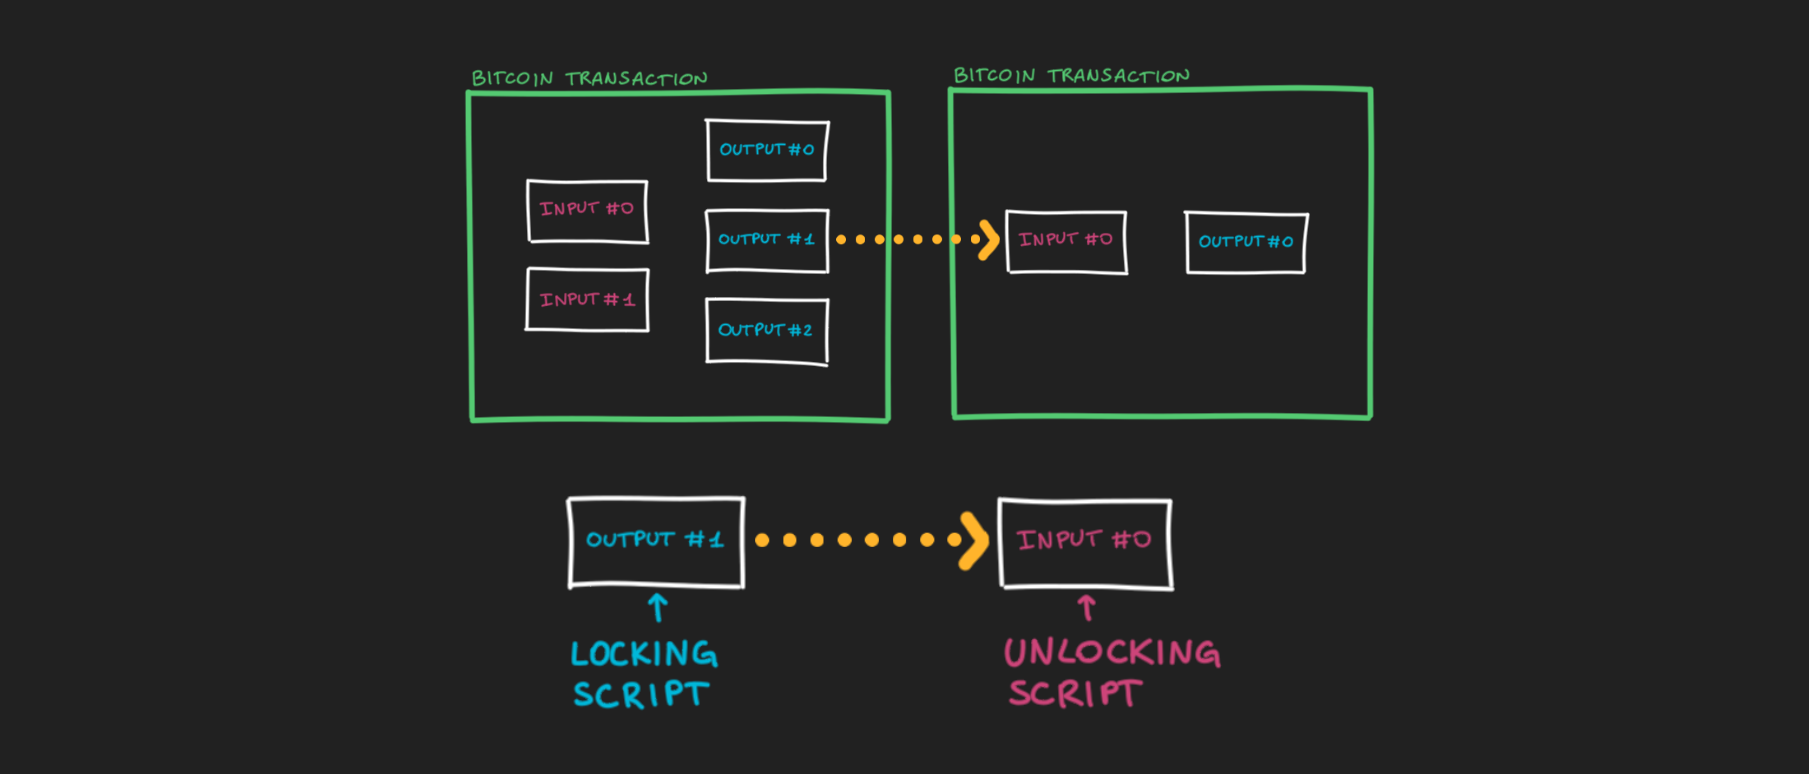 BITCOIN TRANSACTION
OUTPUT #0
INPUT #0
OUTPUT #1
INPUT #1
OUTPUT #2
BITCOIN TRANSACTION
INPUT #0
OUTPUT #0
OUTPUT #1
INPUT #0
LOCKING
SCRIPT
UNLOCKING
SCRIPT